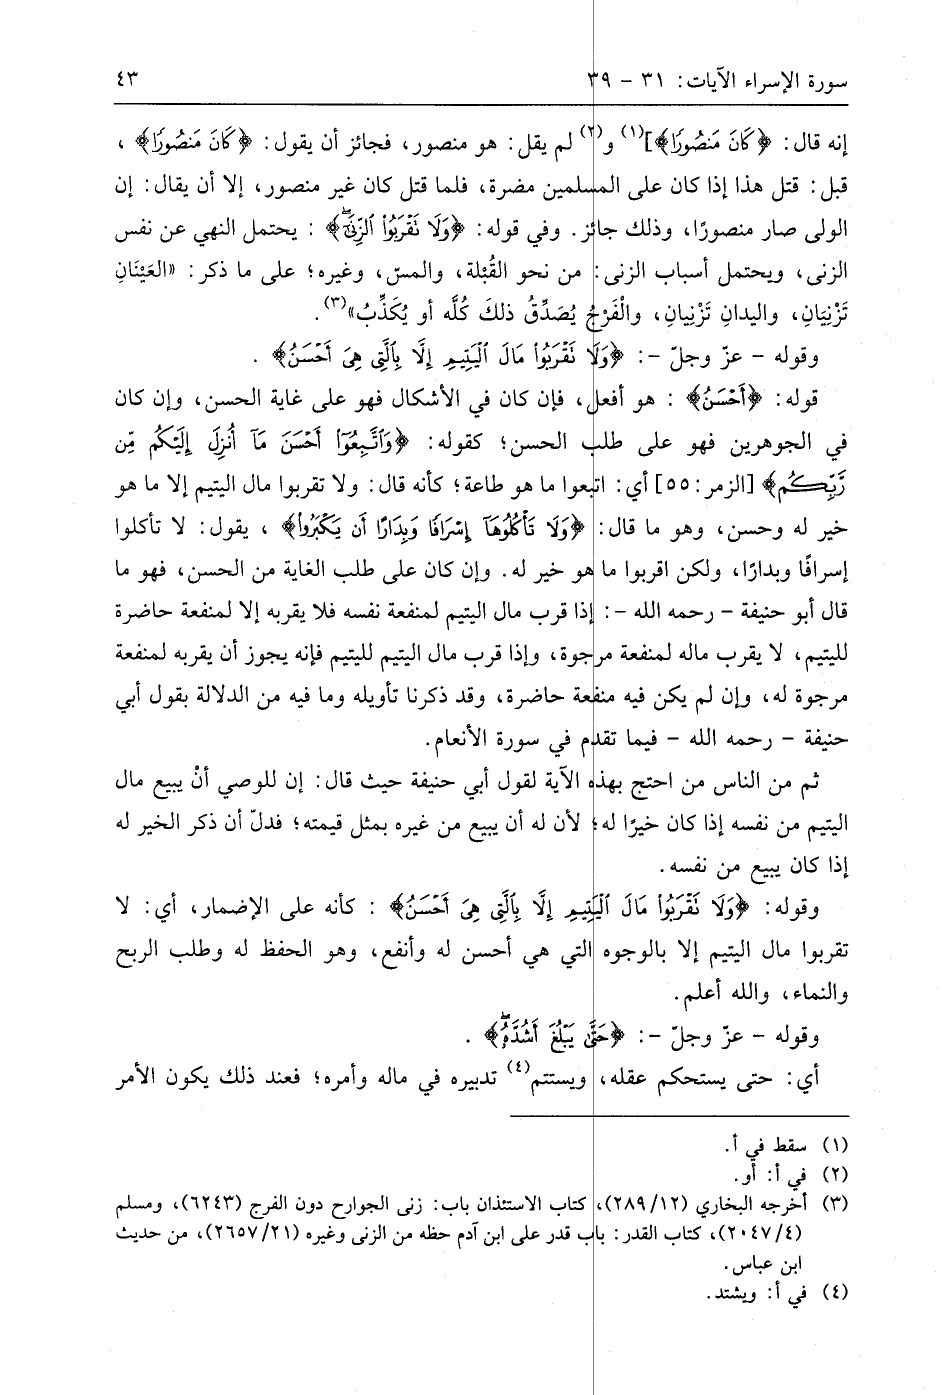 سورة الإسراء الآيات: ٣١ – ٣٩ ٤٣
إنه قال: ﴿كَانَ مَنصُورًا﴾](١) و(٢) لم يقل: هو منصور، فجائز أن يقول: ﴿كَانَ مَنصُورًا﴾ ،
قبل: قتل هذا إذا كان على المسلمين مضرة، فلما قتل كان غير منصور، إلا أن يقال: إن
الولى صار منصورًا، وذلك جائز. وفي قوله: ﴿وَلَا نَقْرَبُوا۟ ٱلزِّنَىٰٓ﴾ : يحتمل النهي عن نفس
الزنى، ويحتمل أسباب الزنى: من نحو القُبْلة، والمسّ، وغيره؛ على ما ذكر: «العَيْنَانِ
تَزْنِيَانِ، واليدانِ تَزْنِيانِ، والْفَرْجُ يُصَدِّقُ ذلكَ كُلَّه أو يُكَذِّبُ»(٣).
وقوله – عزّ وجلّ –: ﴿وَلَا نَقْرَبُوا۟ مَالَ ٱلْيَتِيمِ إِلَّا بِٱلَّتِى هِىَ أَحْسَنُ﴾ .
قوله: ﴿أَحْسَنُ﴾ : هو أفعل، فإن كان في الأشكال فهو على غاية الحسن، وإن كان
في الجوهرين فهو على طلب الحسن؛ كقوله: ﴿وَٱتَّبِعُوٓا۟ أَحْسَنَ مَآ أُنزِلَ إِلَيْكُم مِّن
رَّبِّكُم﴾ [الزمر: ٥٥] أي: اتبعوا ما هو طاعة؛ كأنه قال: ولا تقربوا مال اليتيم إلا ما هو
خير له وحسن، وهو ما قال: ﴿وَلَا تَأْكُلُوهَآ إِسْرَافًا وَبِدَارًا أَن يَكْبَرُوا۟﴾ ، يقول: لا تأكلوا
إسرافًا وبدارًا، ولكن اقربوا ما هو خير له. وإن كان على طلب الغاية من الحسن، فهو ما
قال أبو حنيفة – رحمه الله –: إذا قرب مال اليتيم لمنفعة نفسه فلا يقربه إلا لمنفعة حاضرة
لليتيم، لا يقرب ماله لمنفعة مرجوة، وإذا قرب مال اليتيم لليتيم فإنه يجوز أن يقربه لمنفعة
مرجوة له، وإن لم يكن فيه منفعة حاضرة، وقد ذكرنا تأويله وما فيه من الدلالة بقول أبي
حنيفة – رحمه الله – فيما تقدم في سورة الأنعام.
ثم من الناس من احتج بهذه الآية لقول أبي حنيفة حيث قال: إن للوصي أنْ يبيع مال
اليتيم من نفسه إذا كان خيرًا له؛ لأن له أن يبيع من غيره بمثل قيمته؛ فدلّ أن ذكر الخير له
إذا كان يبيع من نفسه.
وقوله: ﴿وَلَا نَقْرَبُوا۟ مَالَ ٱلْيَتِيمِ إِلَّا بِٱلَّتِى هِىَ أَحْسَنُ﴾ : كأنه على الإضمار، أي: لا
تقربوا مال اليتيم إلا بالوجوه التي هي أحسن له وأنفع، وهو الحفظ له وطلب الربح
والنماء، والله أعلم.
وقوله – عزّ وجلّ –: ﴿حَتَّىٰ يَبْلُغَ أَشُدَّهُۥ﴾ .
أي: حتى يستحكم عقله، ويستتم(٤) تدبيره في ماله وأمره؛ فعند ذلك يكون الأمر
(١) سقط في أ.
(٢) في أ: أو.
(٣) أخرجه البخاري (٢٨٩/١٢)، كتاب الاستئذان باب: زنى الجوارح دون الفرج (٦٢٤٣)، ومسلم
(٢٠٤٧/٤)، كتاب القدر: باب قدر على ابن آدم حظه من الزنى وغيره (٢٦٥٧/٢١)، من حديث
ابن عباس.
(٤) في أ: ويشتد.